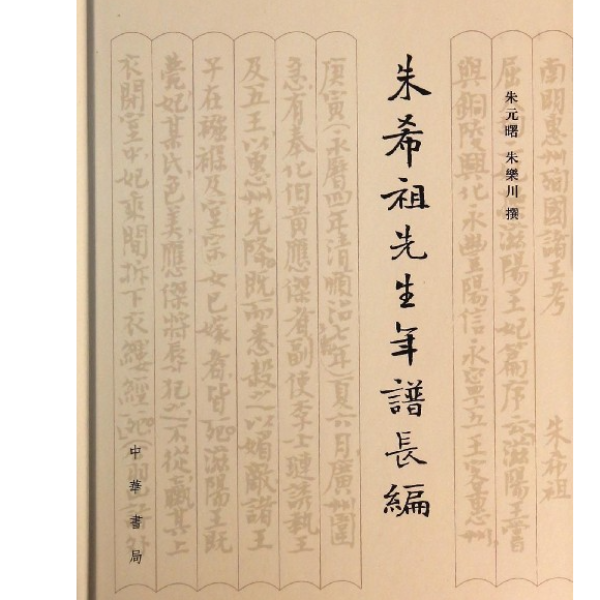 朱元曙 朱樂川 撰
朱希祖先生年譜長編
中華書局
南明惠州殉國諸王考 朱希祖
滋陽王妃篇序云滋陽王
與銅陵興化永豐陽信永寧五王客惠州
庚寅(永曆四年清順治七年)夏六月廣州圍
急有奉化伯黃應傑者副使李士璉請執王
及五王以惠州先降既而悉殺之以媚敵諸王
子在襁褓及室宗女已嫁者皆死滋陽王既
薨妃某氏色美應傑將辱犯之不從
衣閉室中妃東間拆下衣縷經死